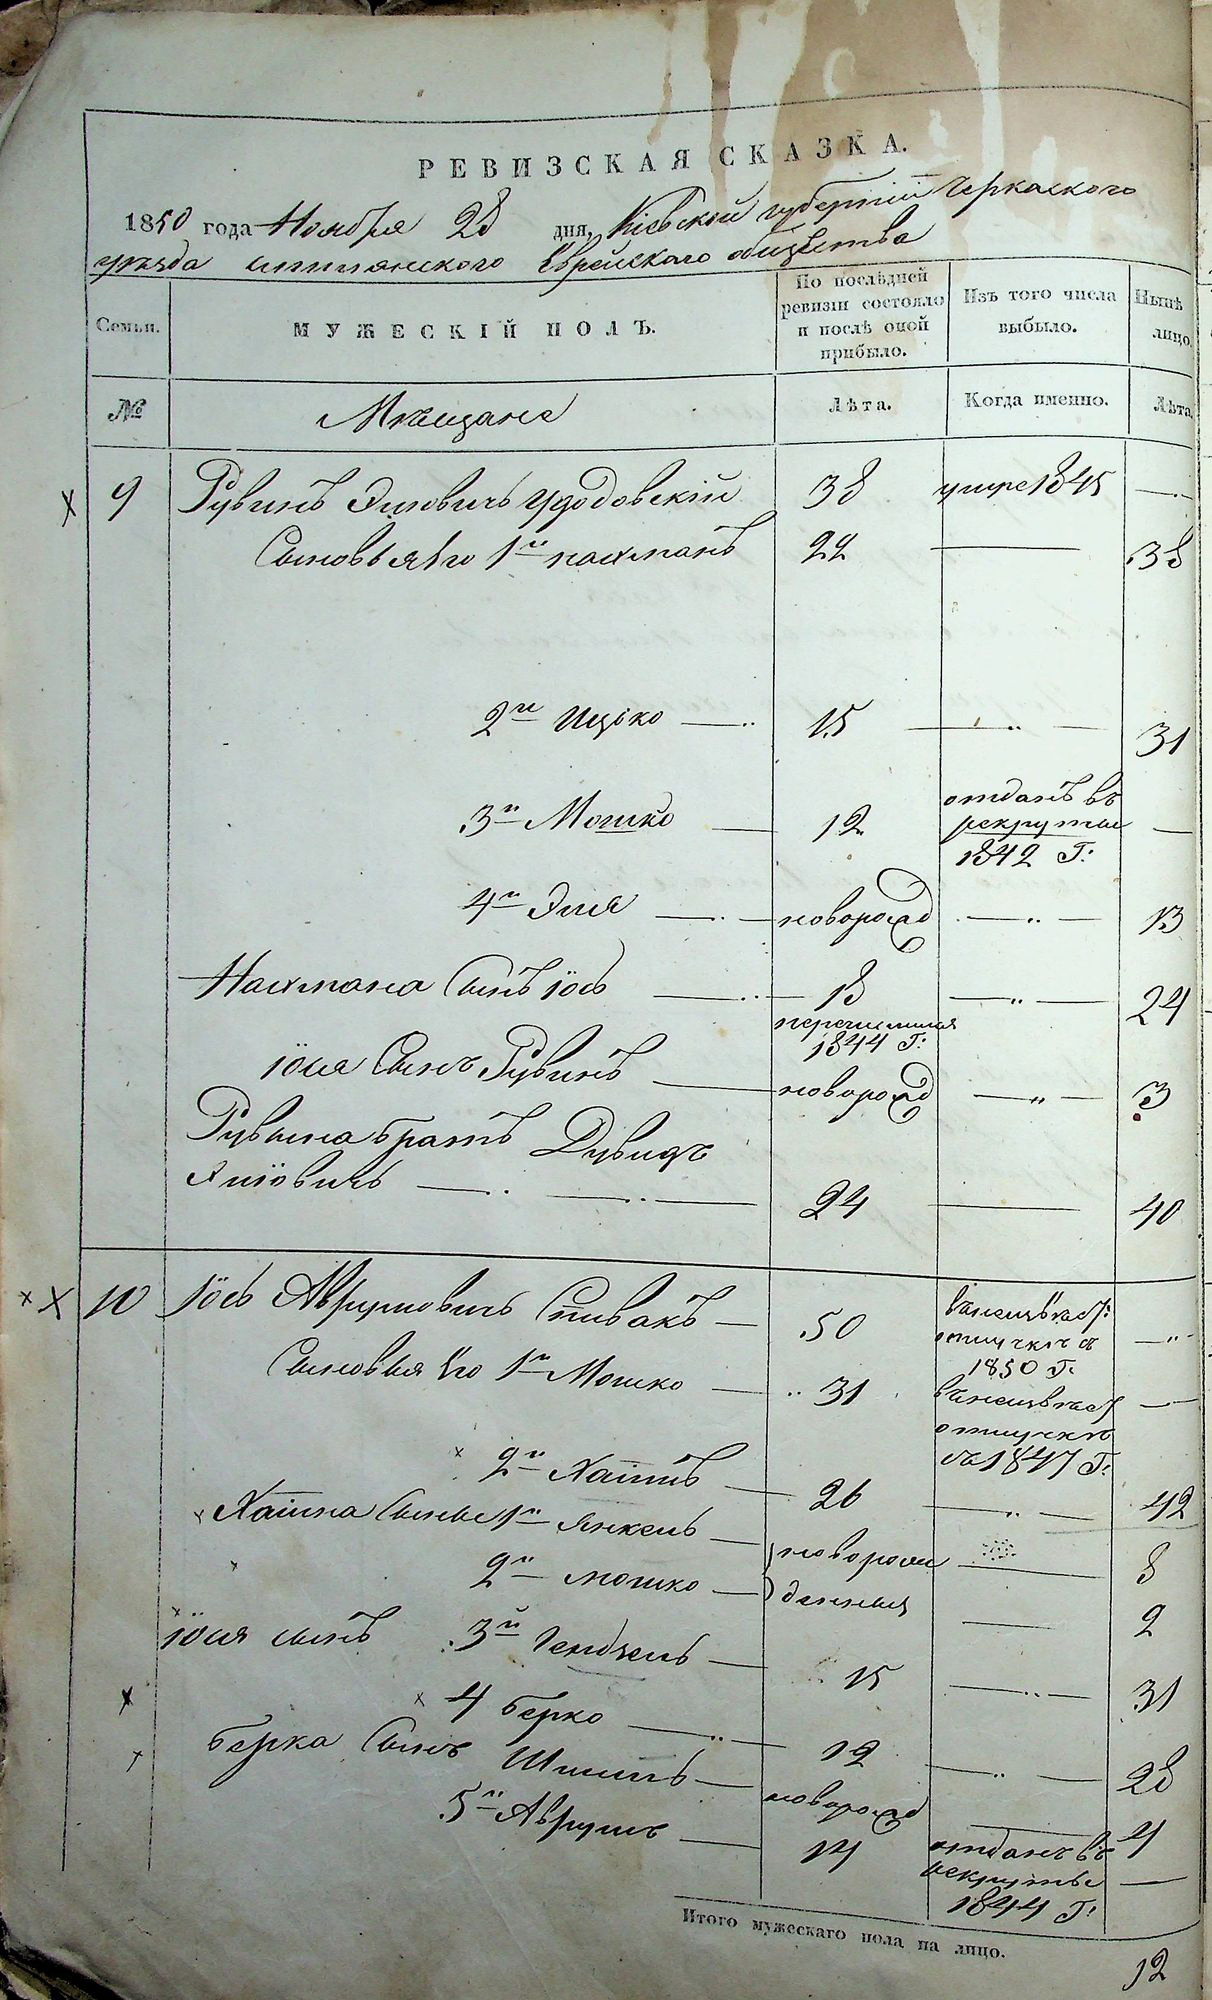 РЕВИЗСКАЯ СКАЗКА.
1850 года Ноября 28 дня, Кіевской губерніи Черкаского
уѣзда Еврейскаго общества
Семьи. МУЖЕСКІЙ ПОЛЪ. По послѣдней ревизіи состояло и послѣ оной прибыло. Изъ того числа выбыло. Нынѣ лицо.
№ Мѣщане Лѣта. Когда именно. Лѣта.
9 Рувинъ 38 умре 1845
Сыновья Его 1й Нахманъ 22 38
2й Ицько 15 31
3й Мошко 12 отданъ въ рекруты 1842 Г:
4й Эля новорожд 13
Нахмана Сынъ Іось 18 24
1844 Г:
Іося Сынъ Рувинъ новорожд 3
Рувина братъ Дувидъ
24 40
10 Іось Аврумовичъ Спивакъ 50
1850 Г.
Сыновья Его 1й Мошко 31
1847 Г:
2й Хаимъ 26 42
Хаима Сыны 1й Янкель новорож 8
2й Мошко денныя 2
Іося сынъ 3й 15 31
4 Берко 12 28
Берка Сынъ новорожд 4
5й Аврумъ 14 отданъ въ рекруты 1844 Г:
Итого мужескаго пола на лицо. 12